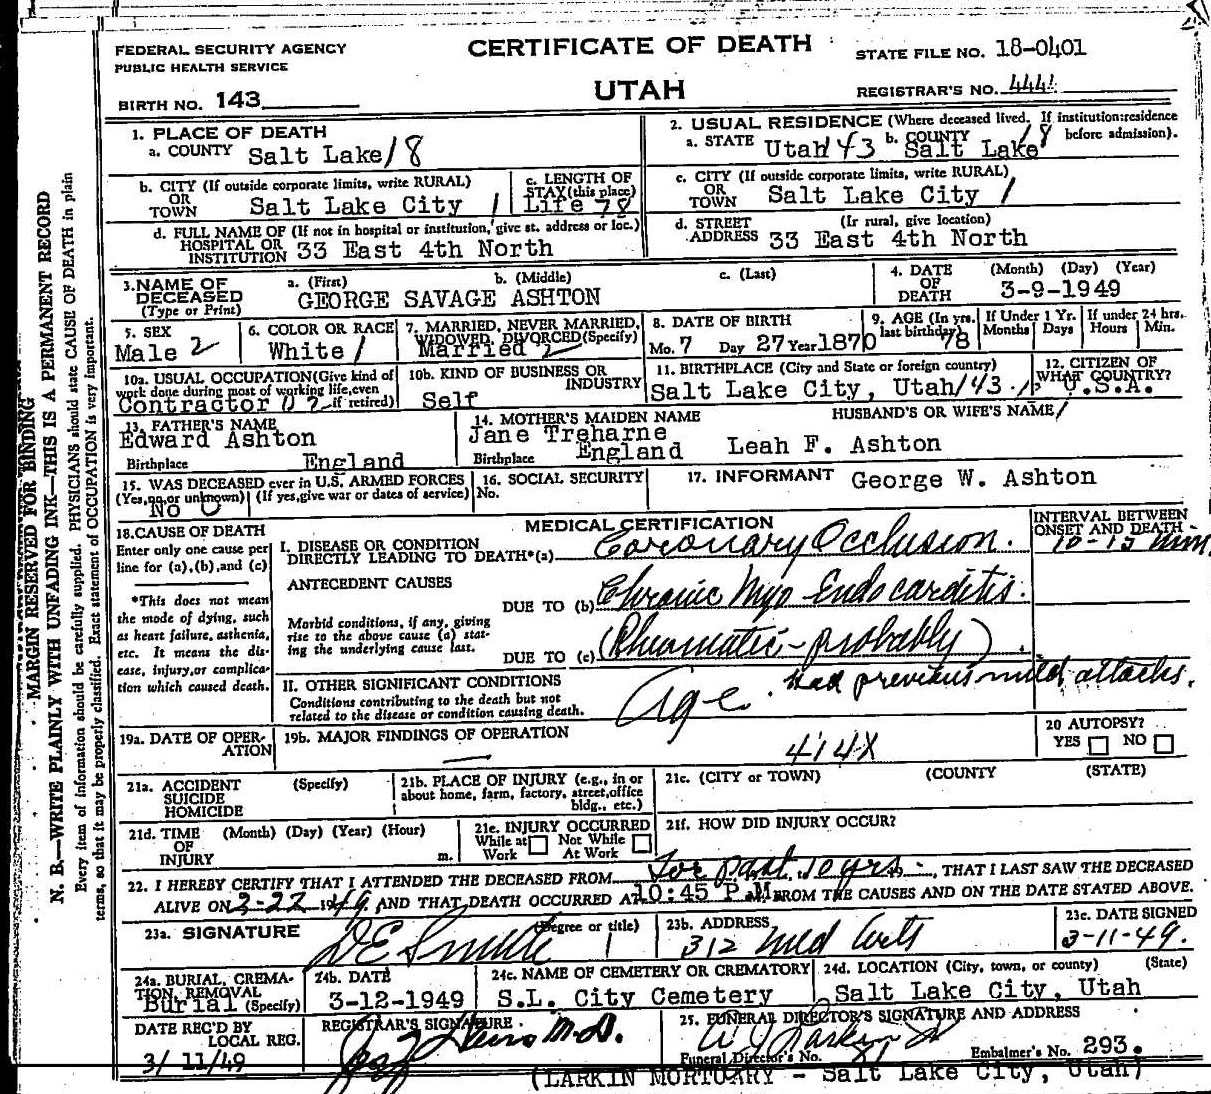 FEDERAL SECURITY AGENCY
PUBLIC HEALTH SERVICE
CERTIFICATE OF DEATH
UTAH
STATE FILE NO. 18-0401
REGISTRAR'S NO. 444
BIRTH NO. 143
MARGIN RESERVED FOR BINDING
N. B.—WRITE PLAINLY WITH UNFADING INK—THIS IS A PERMANENT RECORD
Every item of information should be carefully supplied. PHYSICIANS should state CAUSE OF DEATH in plain
terms, so that it may be properly classified. Exact statement of OCCUPATION is very important.
1. PLACE OF DEATH
a. COUNTY Salt Lake/8
2. USUAL RESIDENCE (Where deceased lived. If institution:residence
before admission).
a. STATE Utah 143 b. COUNTY Salt Lake 18
b. CITY (If outside corporate limits, write RURAL)
OR
TOWN Salt Lake City 1
c. LENGTH OF
STAY (this place)
Life 78
c. CITY (If outside corporate limits, write RURAL)
OR
TOWN Salt Lake City 1
d. FULL NAME OF (If not in hospital or institution, give st. address or loc.)
HOSPITAL OR
INSTITUTION 33 East 4th North
d. STREET (Ir rural, give location)
ADDRESS 33 East 4th North
3. NAME OF
DECEASED
(Type or Print)
a. (First) b. (Middle) c. (Last)
GEORGE SAVAGE ASHTON
4. DATE (Month) (Day) (Year)
OF
DEATH 3-9-1949
5. SEX
Male 2
6. COLOR OR RACE
White 1
7. MARRIED, NEVER MARRIED,
WIDOWED, DIVORCED(Specify)
Married 2
8. DATE OF BIRTH
Mo. 7 Day 27 Year 1870
9. AGE (In yrs.
last birthday)
78
If Under 1 Yr.
Months Days
If under 24 hrs.
Hours Min.
10a. USUAL OCCUPATION(Give kind of
work done during most of working life,even
if retired)
Contractor
10b. KIND OF BUSINESS OR
INDUSTRY
Self
11. BIRTHPLACE (City and State or foreign country)
Salt Lake City, Utah/43
12. CITIZEN OF
WHAT COUNTRY?
U.S.A.
13. FATHER'S NAME
Edward Ashton
Birthplace England
14. MOTHER'S MAIDEN NAME
Jane Treharne
Birthplace England
HUSBAND'S OR WIFE'S NAME
Leah F. Ashton
15. WAS DECEASED ever in U.S. ARMED FORCES
(Yes,no,or unknown) (If yes,give war or dates of service)
No 0
16. SOCIAL SECURITY
No.
17. INFORMANT George W. Ashton
18.CAUSE OF DEATH
Enter only one cause per
line for (a),(b),and (c)
*This does not mean
the mode of dying, such
as heart failure, asthenia,
etc. It means the dis-
ease, injury,or complica-
tion which caused death.
MEDICAL CERTIFICATION
INTERVAL BETWEEN
ONSET AND DEATH
10-15 min.
I. DISEASE OR CONDITION
DIRECTLY LEADING TO DEATH*(a) Coronary Occlusion.
ANTECEDENT CAUSES
DUE TO (b) Chronic Myo Endocarditis.
Morbid conditions, if any, giving
rise to the above cause (a) stat-
ing the underlying cause last.
DUE TO (c) (Rheumatic-probably)
II. OTHER SIGNIFICANT CONDITIONS
Conditions contributing to the death but not
related to the disease or condition causing death.
Age. Had previous mild attacks.
19a. DATE OF OPER-
ATION
19b. MAJOR FINDINGS OF OPERATION
414X
20 AUTOPSY?
YES NO
21a. ACCIDENT (Specify)
SUICIDE
HOMICIDE
21b. PLACE OF INJURY (e.g., in or
about home, farm, factory, street,office
bldg., etc.)
21c. (CITY or TOWN) (COUNTY) (STATE)
21d. TIME (Month) (Day) (Year) (Hour)
OF
INJURY m.
21e. INJURY OCCURRED
While at Not While
Work At Work
21f. HOW DID INJURY OCCUR?
22. I HEREBY CERTIFY THAT I ATTENDED THE DECEASED FROM For past 10 yrs -, THAT I LAST SAW THE DECEASED
ALIVE ON 2-22 1949, AND THAT DEATH OCCURRED AT 10:45 P.M. FROM THE CAUSES AND ON THE DATE STATED ABOVE.
23a. SIGNATURE (Degree or title)
23b. ADDRESS
312 Med Arts
23c. DATE SIGNED
3-11-49.
24a. BURIAL, CREMA-
TION, REMOVAL
(Specify)
Burial
24b. DATE
3-12-1949
24c. NAME OF CEMETERY OR CREMATORY
S.L. City Cemetery
24d. LOCATION (City, town, or county) (State)
Salt Lake City, Utah
DATE REC'D BY
LOCAL REG.
3/11/49
REGISTRAR'S SIGNATURE
M.D.
25. FUNERAL DIRECTOR'S SIGNATURE AND ADDRESS
Funeral Director's No. 81 Embalmer's No. 293.
(LARKIN MORTUARY - Salt Lake City, Utah)